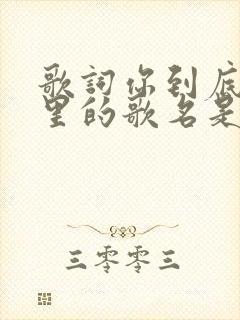 歌詞你到底
里的歌名是
三零零三